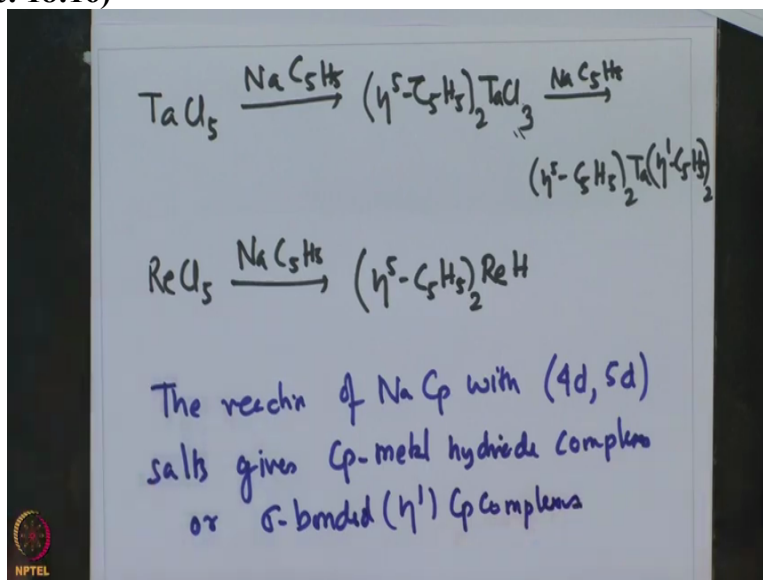 TaCl₅ —NaC₅H₅→ (η⁵-C₅H₅)₂TaCl₃ —NaC₅H₅→
(η⁵-C₅H₅)₂Ta(η¹-C₅H₅)₂
ReCl₅ —NaC₅H₅→ (η⁵-C₅H₅)₂ReH
The reactn of NaCp with (4d, 5d)
salts gives Cp-metal hydride complexes
or σ-bonded (η¹) Cp complexes
NPTEL